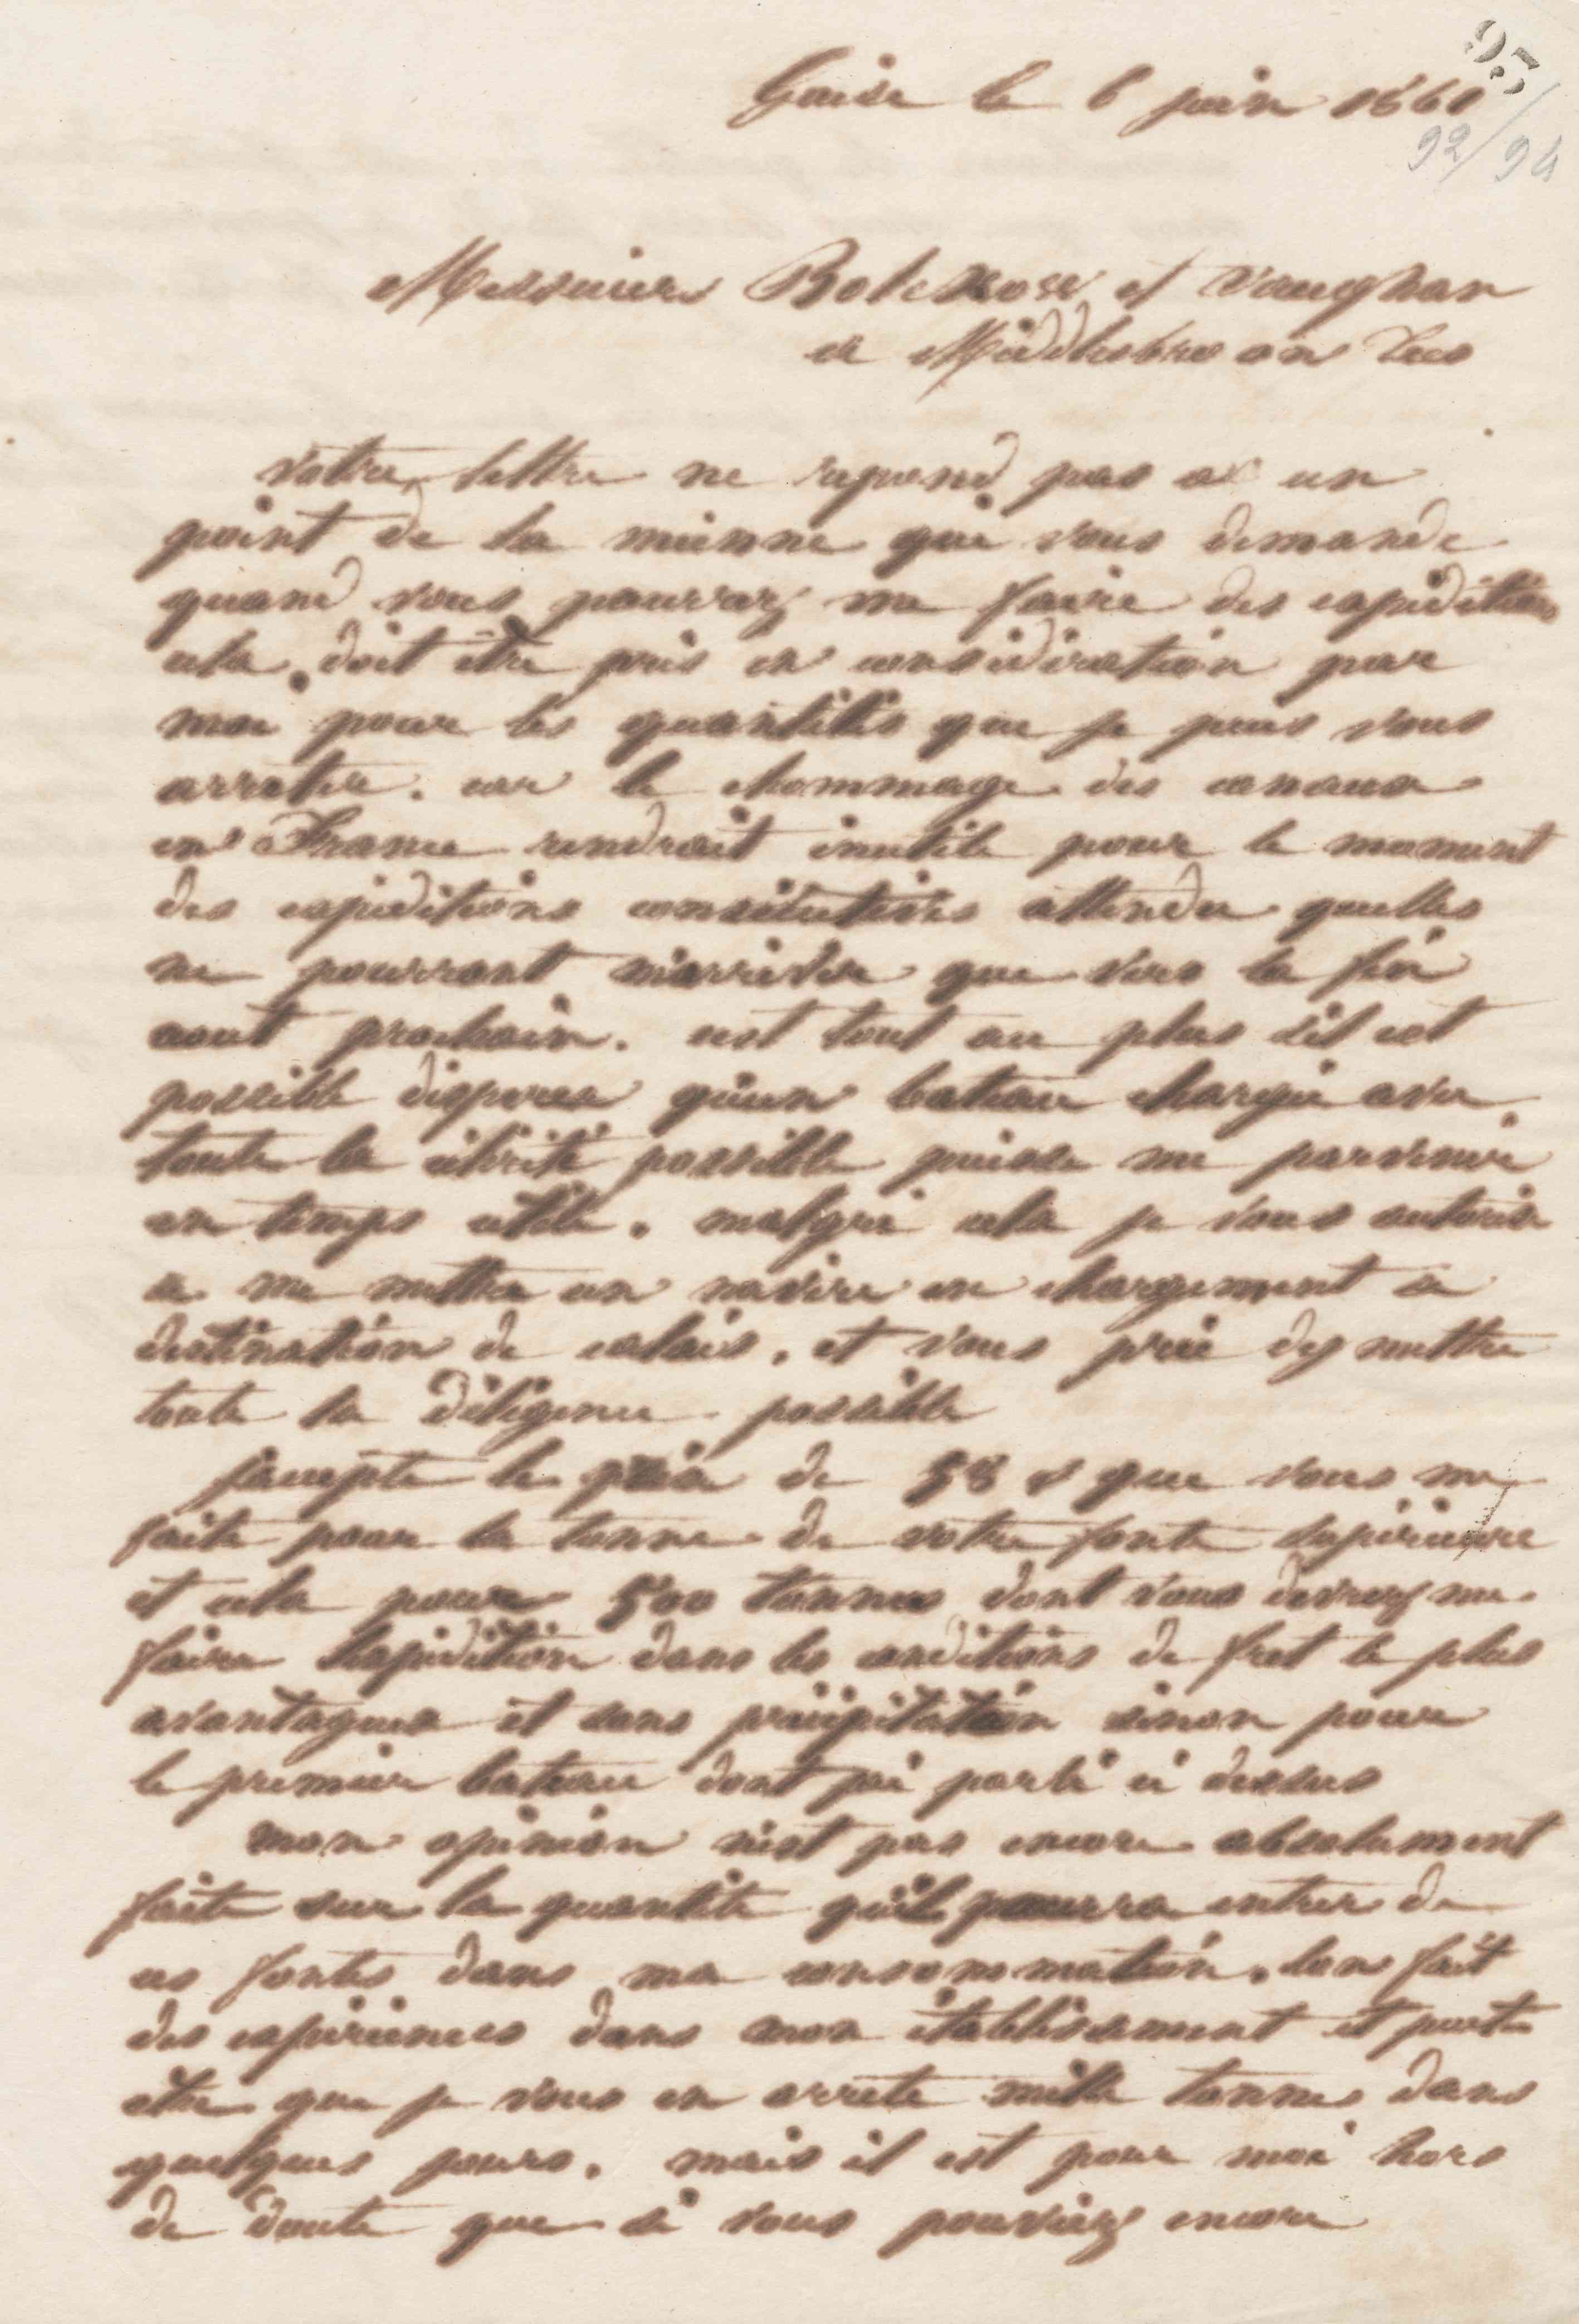 95
92/94
Guise le 6 juin 1861
Messieurs Bolckow et Vaughan
à Middlesbro on Tees
Votre lettre ne repond pas a un
point de la mienne qui vous demande
quand vous pourrez me faire des expéditions
cela doit être pris en considération par
moi pour les quantités que je puis vous
arrêter. car le chommage des canaux
en France rendrait inutile pour le moment
des expéditions consécutives attendu quelles
ne pourront m'arriver que vers la fin
aout prochain. cest tout au plus s'il est
possible d'esperer qu'un bateau chargé avec
toute la célérité possible puisse me parvenir
en temps utile. malgré cela je vous autorise
à me mettre un navire en chargement à
destination de calais, et vous prie d'y mettre
toute la diligence possible
J'accepte le prix de 58 s que vous me
faite pour la tonne de votre fonte supérieure
et cela pour 500 tonnes dont vous devrez me
faire l'expédition dans les conditions de fret le plus
avantageux et sans précipitation sinon pour
le premier bateau dont j'ai parlé ci dessus
mon opinion n'est pas encore absolument
faite sur la quantité qu'il pourra entrer de
ces fontes dans ma consommation. lon fait
des expériences dans mon établissement et peut
etre que je vous en arrete mille tonnes dans
quelques jours. mais il est pour moi hors
de doute que si vous pouviez encore